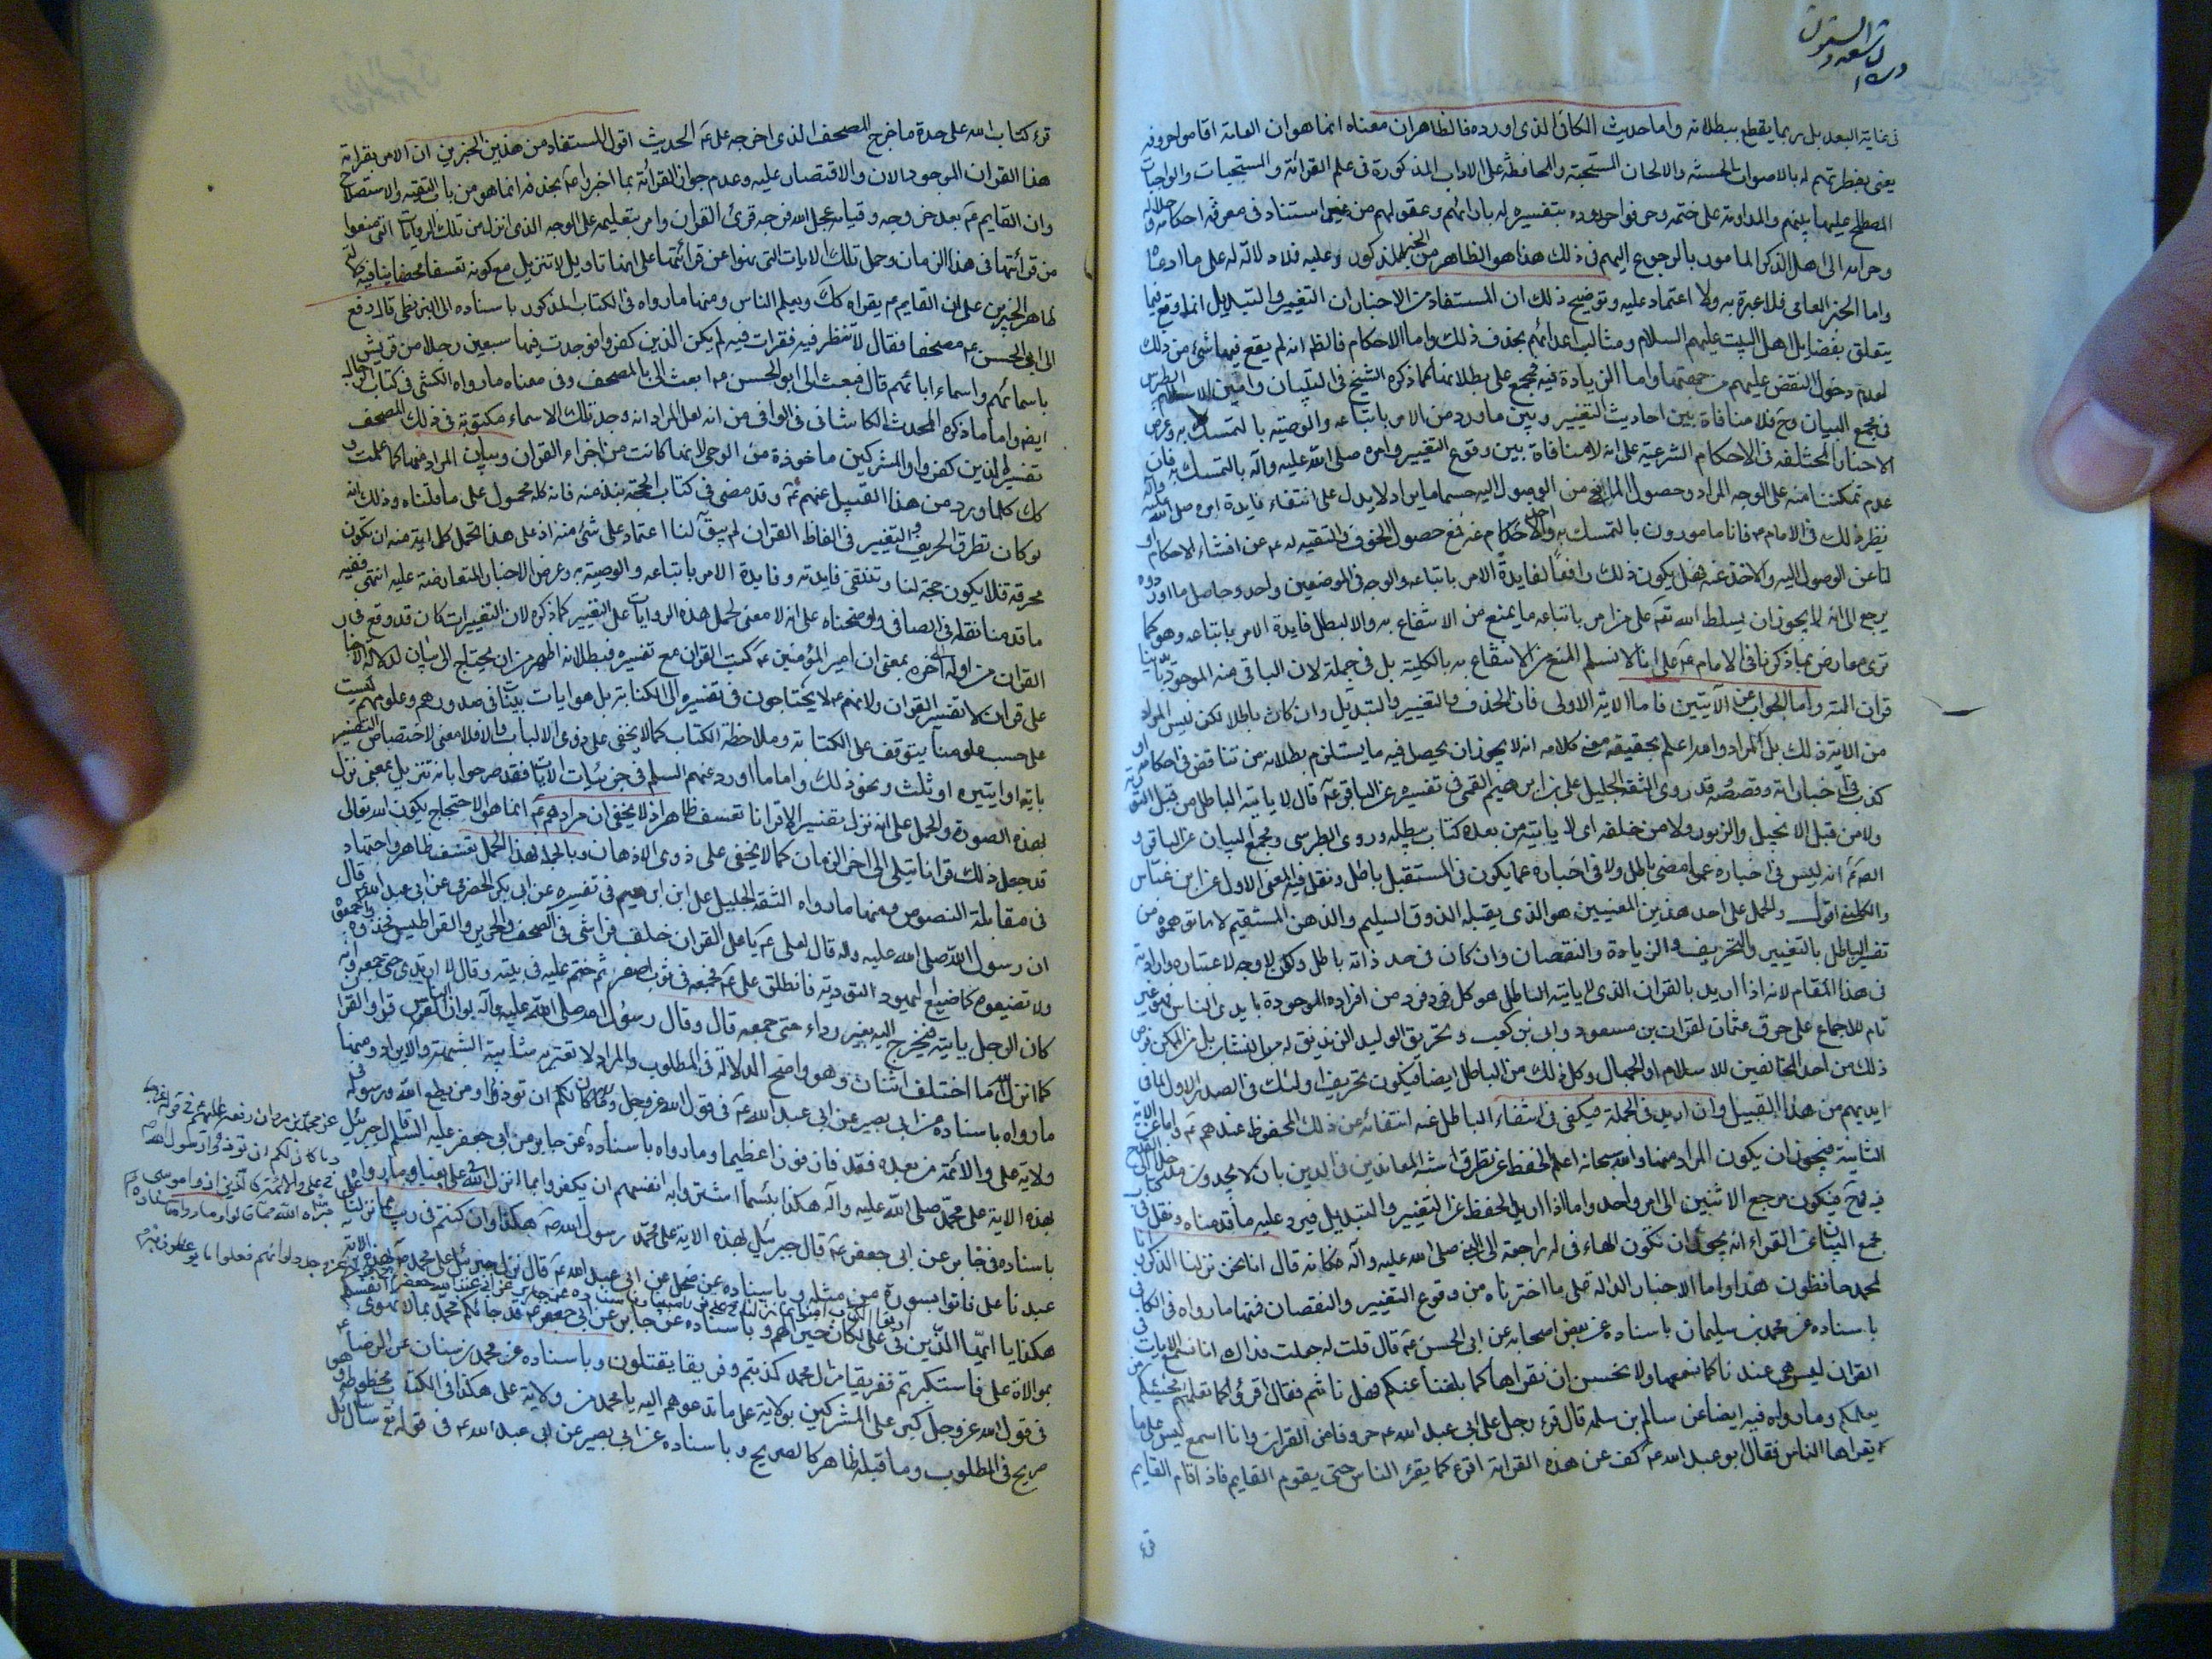 في غاية البعد بل ربما يقطع ببطلانه واما حديث الكافي الذي اورده فالظاهر ان معناه انما هو ان العامة اقاموا حروفه
المصطلح عليها بينهم والمداومة على ختمه وحرفوا حدوده بتفسيره له بارائهم وعقولهم من غير استناد في معرفة احكامه و
وحرامه الى اهل الذكر المامور بالرجوع اليهم في ذلك هذا هو الظاهر من الخبر المذكور وعليه فلا دلالة له على ما ادعاه
واما الخبر العامي فلا عبرة به ولا اعتماد عليه وتوضيح ذلك ان المستفاد من الاخبار ان التغيير والتبديل انما وقع فيما
يتعلق بفضايل اهل البيت عليهم السلام ومثالب اعدائهم بحذف ذلك واما الاحكام فالظ انه لم يقع فيها شئ من ذلك
لعدم دخول النقض عليهم من جهتها واما الزيادة فيه فمجمع على بطلانها كما ذكره الشيخ في التبيان وامين الاسلام
في مجمع البيان وح فلا منافاة بين احاديث التغيير وبين ما ورد من الامر باتباعه والوصية بالتمسك به وعرض
الاخبار المختلفة في الاحكام الشرعية على انه لا منافاة بين وقوع التغيير وامره صلى الله عليه وآله بالتمسك به فان
عدم تمكننا منه على الوجه المراد وحصول المانع من الوصول اليه حسبما يراد لا يدل على انتفاء فايدة امره صلى الله عليه وآله
نظير ذلك في الامام ع فانا مامورون بالتمسك به واخذ الاحكام عنه مع حصول الخوف والتقية له ع عن افشاء الاحكام او
لنا عن الوصول اليه والاخذ عنه فهل يكون ذلك رافعا لفايدة الامر باتباعه والوجه في الموضعين واحد وحاصل ما اورده
يرجع الى انه لا يجوز ان يسلط الله تعالى على من امر باتباعه ما يمنع من الانتفاع به والا لبطل فايدة الامر باتباعه وهو كما
ترى معارض بما ذكرنا في الامام ع على انا لا نسلم المنع من الانتفاع به بالكلية بل في جملة لان الباقي منه الموجود بايدينا
قران البتة واما الجواب عن الآيتين فاما الاية الاولى فان الحذف والتغيير والتبديل وان كان باطلا لكن ليس المراد
من الاية ذلك بل المراد والله اعلم بحقيقة معنى كلامه انه لا يجوز ان يحصل فيه ما يستلزم بطلانه من تناقض في احكامه او
كذب في اخباراته وقصصه قد روى الثقة الجليل علي بن ابرهيم القمي في تفسيره عن الباقر ع قال لا ياتيه الباطل من قبل التورية
ولا من قبل الانجيل والزبور ولا من خلفه اى لا ياتيه من بعده كتاب يبطله وروى الطبرسي في مجمع البيان عن الباقر و
الصادق ع انه ليس في اخباره عما مضى باطل ولا في اخباره عما يكون في المستقبل باطل ونقل فيه المعنى الاول عن ابن عباس
والكلبي اقول والحمل على احد هذين المعنيين هو الذي يقبله الذوق السليم والذهن المستقيم لا ما توهموه من
تفسير الباطل بالتغيير والتحريف والزيادة والنقصان وان كان في حد ذاته باطل ولكن لا وجه لاعتباره وارادته
في هذا المقام لانه اذا اريد بالقران الذي لا ياتيه الباطل هو كل فرد فرد من افراده الموجودة بايدي الناس فهو غير
تام للاجماع على حرق عثمان لقران بن مسعود وابي بن كعب وتحريق الوليد الزنديق له بل من الممكن فرض
ذلك من احد المخالفين للاسلام او الجهال وكل ذلك من الباطل ايضا فيكون تحريف اولئك في الصدر الاول لما في
ايديهم من هذا القبيل وان اريد في الجملة فيكفي في انتفاء الباطل عنه انتفائه عن ذلك المحفوظ عندهم ع واما عن الاية
الثانية فيجوز ان يكون المراد منها والله سبحانه اعلم الحفظ عن تطرق شبه المعاندين في الدين بان لا يجدون مدخلا الى القدح
فيه فح فيكون مرجع الاثنين الى امر واحد واما اذا اريد الحفظ عن التغيير والتبديل فيرد عليه ما قدمناه ونقل في
مجمع البيان عن الفراء انه يجوز ان تكون الهاء في له راجعة الى النبي صلى الله عليه وآله فكانه قال انا نحن نزلنا الذكر وانا
لمحمد حافظون هذا واما الاخبار الدالة على ما اخترناه من وقوع التغيير والنقصان فمنها ما رواه في الكافي
باسناده عن محمد بن سليمان باسناده عن بعض اصحابه عن ابي الحسن ع قال قلت له جعلت فداك انا نسمع الايات في
القران ليس هي عندنا كما نسمعها ولا نحسن ان نقراها كما بلغنا عنكم فهل ناثم فقال لا اقرؤا كما تعلمتم فسيجيئكم من
يعلمكم وما رواه فيه ايضا عن سالم بن سلمه قال قرء رجل على ابي عبد الله ع حروفا من القران وانا اسمع ليس على ما
يقراها الناس فقال ابو عبد الله ع كف عن هذه القراءة اقرء كما يقرء الناس حتى يقوم القايم فاذا قام القايم
قرء
قرء كتاب الله على حدة ما خرج المصحف الذي اخرجه علي ع الحديث اقول المستفاد من هذين الخبرين ان الامر بقراءة
هذا القران الموجود الان والاقتصار عليه وعدم جواز القراءة بما اخبروا ع بحذفه انما هو من باب التقية والاستصلاح
وان القايم ع بعد خروجه وقيامه عجل الله فرجه قرئ القران وامر بتعليمه على الوجه الذي انزل من تلك الروايات التي منعوا
من قرائتها في هذا الزمان وحمل تلك الايات التي نهوا عن قرائتها على انها تاويل لا تنزيل مع كونه تعسفا محضا ينافيه
ظاهر الخبرين على ان القايم ع يقراه كك ويعلم الناس ومنها ما رواه في الكتاب المذكور باسناده الى البزنطي قال دفع
الى ابي الحسن ع مصحفا فقال لا تنظر فيه فقرات فيه لم يكن الذين كفروا فوجدت فيها سبعين رجلا من قريش
باسمائهم واسماء ابائهم قال فبعث الى ابو الحسن ع ابعث الي بالمصحف وفي معناه ما رواه الكشي في كتاب الرجال
ايضا واما ما ذكره المحدث الكاشاني في الوافي من انه لعل المراد انه وجد تلك الاسماء مكتوبة في ذلك المصحف
تفسيرا للذين كفروا والمشركين ماخوذة من الوحي لا انها كانت من اجزاء القران وبيان المراد منها كما علمت و
كك كلما ورد من هذا القبيل عنهم ع وقد مضى في كتاب الحجة نبذ منه فانه كله محمول على ما قلناه وذلك انه
لو كان تطرق التحريف والتغيير في الفاظ القران لم يبق لنا اعتماد على شئ منه اذ على هذا يحتمل كل اية منه ان يكون
محرفة فلا يكون حجة لنا وتنتفي فايدته وفايدة الامر باتباعه والوصية به وعرض الاخبار المتعارضة عليه انتهى ففيه
ما قدمنا نقله في الصافي واوضحناه على انه لا معنى لحمل هذه الروايات على التغيير كما ذكره لان التغييرات كان قد وقع في
القران من اوله الى اخره بمعنى ان امير المؤمنين ع كتب القران مع تفسيره فبطلانه اظهر من ان يحتاج الى بيان لدلالة الاخبار
على قران لا تفسير القران ولانهم ع لا يحتاجون في تفسيره الى الكتابة بل هو ايات بينات في صدورهم وعلومهم ليست
على حسب علومنا يتوقف على الكتابة وملاحظة الكتاب كما لا يخفى على ذوى الالباب والا فلا معنى لاختصاص التفسير
باية او ايتين او ثلث ونحو ذلك واما ما اورد عنهم السلم في جزئيات الايات فقد صرحوا بانه تنزيل بمعنى نزل
بهذه الصورة والحمل على انه نزل بتفسير الاقرانا تعسف ظاهر اذ لا يخفى ان مرادهم ع انما هو الاحتجاج بكون الله تعالى
قد جعل ذلك قرانا يتلى الى اخر الزمان كما لا يخفى على ذوى الاذهان وبالجملة فهذا الحمل تعسف ظاهر واجتهاد
في مقابلة النصوص ومنها ما رواه الثقة الجليل علي ابن ابرهيم في تفسيره عن ابي بكر الحضرمي عن ابي عبد الله ع قال
ان رسول الله صلى الله عليه واله قال لعلي ع يا علي القران خلف فراشي في الصحف والحرير والقراطيس فخذوه واجمعوه
ولا تضيعوه كما ضيع اليهود التورية فانطلق علي ع فجمعه في ثوب اصفر ثم ختم عليه في بيته وقال لا ارتدي حتى اجمعه وانه
كان الرجل ياتيه فيخرج اليه بغير رداء حتى جمعه قال وقال رسول الله صلى الله عليه وآله لو ان الناس قراوا القران
كما انزل الله ما اختلف اثنان وهو واضح الدلالة في المطلوب والمراد لا تعتريه شائبة الشبهة والايراد ومنها
ما رواه باسناده عن ابي بصير عن ابي عبد الله ع في قول الله عز وجل وما كان لكم ان توذوا ومن يطع الله ورسوله في
ولاية علي والائمة من بعده فقد فاز فوزا عظيما وما رواه باسناده عن جابر عن ابي جعفر عليه السلم قال نزل جبرئيل
بهذه الاية على محمد صلى الله عليه وآله هكذا بئسما اشتروا به انفسهم ان يكفروا بما انزل الله في علي بغيا وما رواه
باسناده في جابر عن ابي جعفر ع قال نزل جبرئيل بهذه الاية على محمد رسول الله ص هكذا وان كنتم في ريب مما نزلنا على
عبدنا في علي فاتوا بسورة من مثله وباسناده عن منخل عن ابي عبد الله ع قال نزل جبرئيل على محمد ص بهذه الاية
هكذا يا ايها الذين
بموالاة علي فاستكبرتم ففريقا من ال محمد كذبتم وفريقا تقتلون وباسناده عن محمد بن سنان عن الرضا ع
في قول الله عز وجل كبر على المشركين بولاية علي ما تدعوهم اليه يا محمد من ولاية علي هكذا في الكتاب مخطوطة وهو
صريح في المطلوب وما قبله ظاهر كالصريح وباسناده عن ابي بصير عن ابي عبد الله ع في قوله تع سال سائل